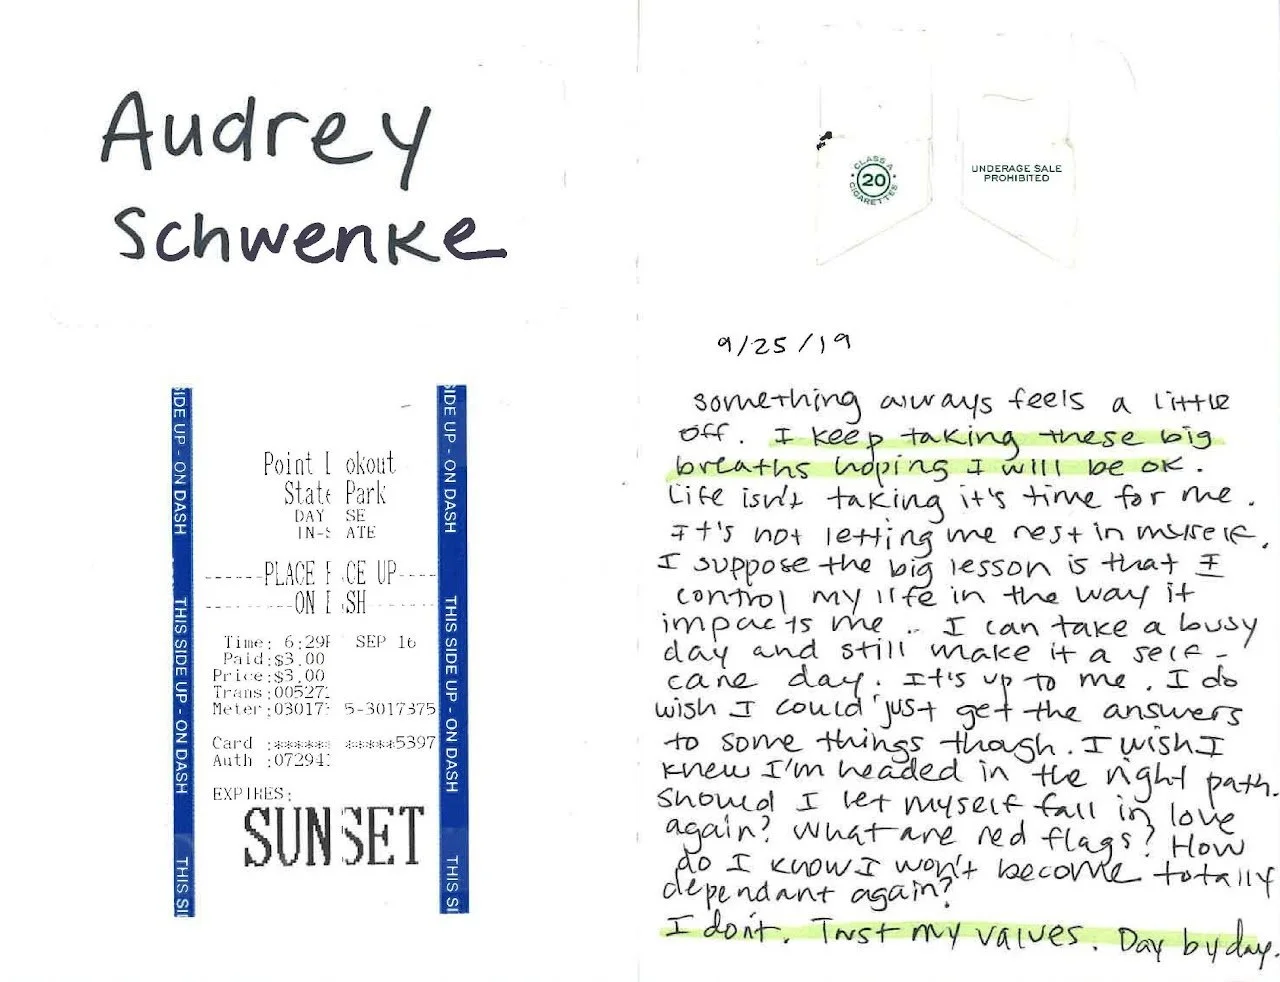 Audrey
Schwenke
SIDE UP - ON DASH THIS SIDE UP - ON DASH THIS SI
Point L okout
State Park
DAY SE
IN-S ATE
------PLACE F CE UP----
---------ON D SH--------
Time: 6:29P SEP 16
Paid:$3.00
Price:$3.00
Trans:00527
Meter:03017 5-3017375
Card :****** *****5397
Auth :07294
EXPIRES:
SUNSET
SIDE UP - ON DASH THIS SIDE UP - ON DASH THIS SI
CLASS A
20
CIGARETTES
UNDERAGE SALE
PROHIBITED
9/25/19
something always feels a little
off. I keep taking these big
breaths hoping I will be ok.
Life isn't taking it's time for me.
It's not letting me rest in myself.
I suppose the big lesson is that I
control my life in the way it
impacts me.. I can take a busy
day and still make it a self-
care day. It's up to me. I do
wish I could just get the answers
to some things though. I wish I
knew I'm headed in the right path.
Should I let myself fall in love
again? What are red flags? How
do I know I won't become totally
dependant again?
I don't. Trust my values. Day by day.